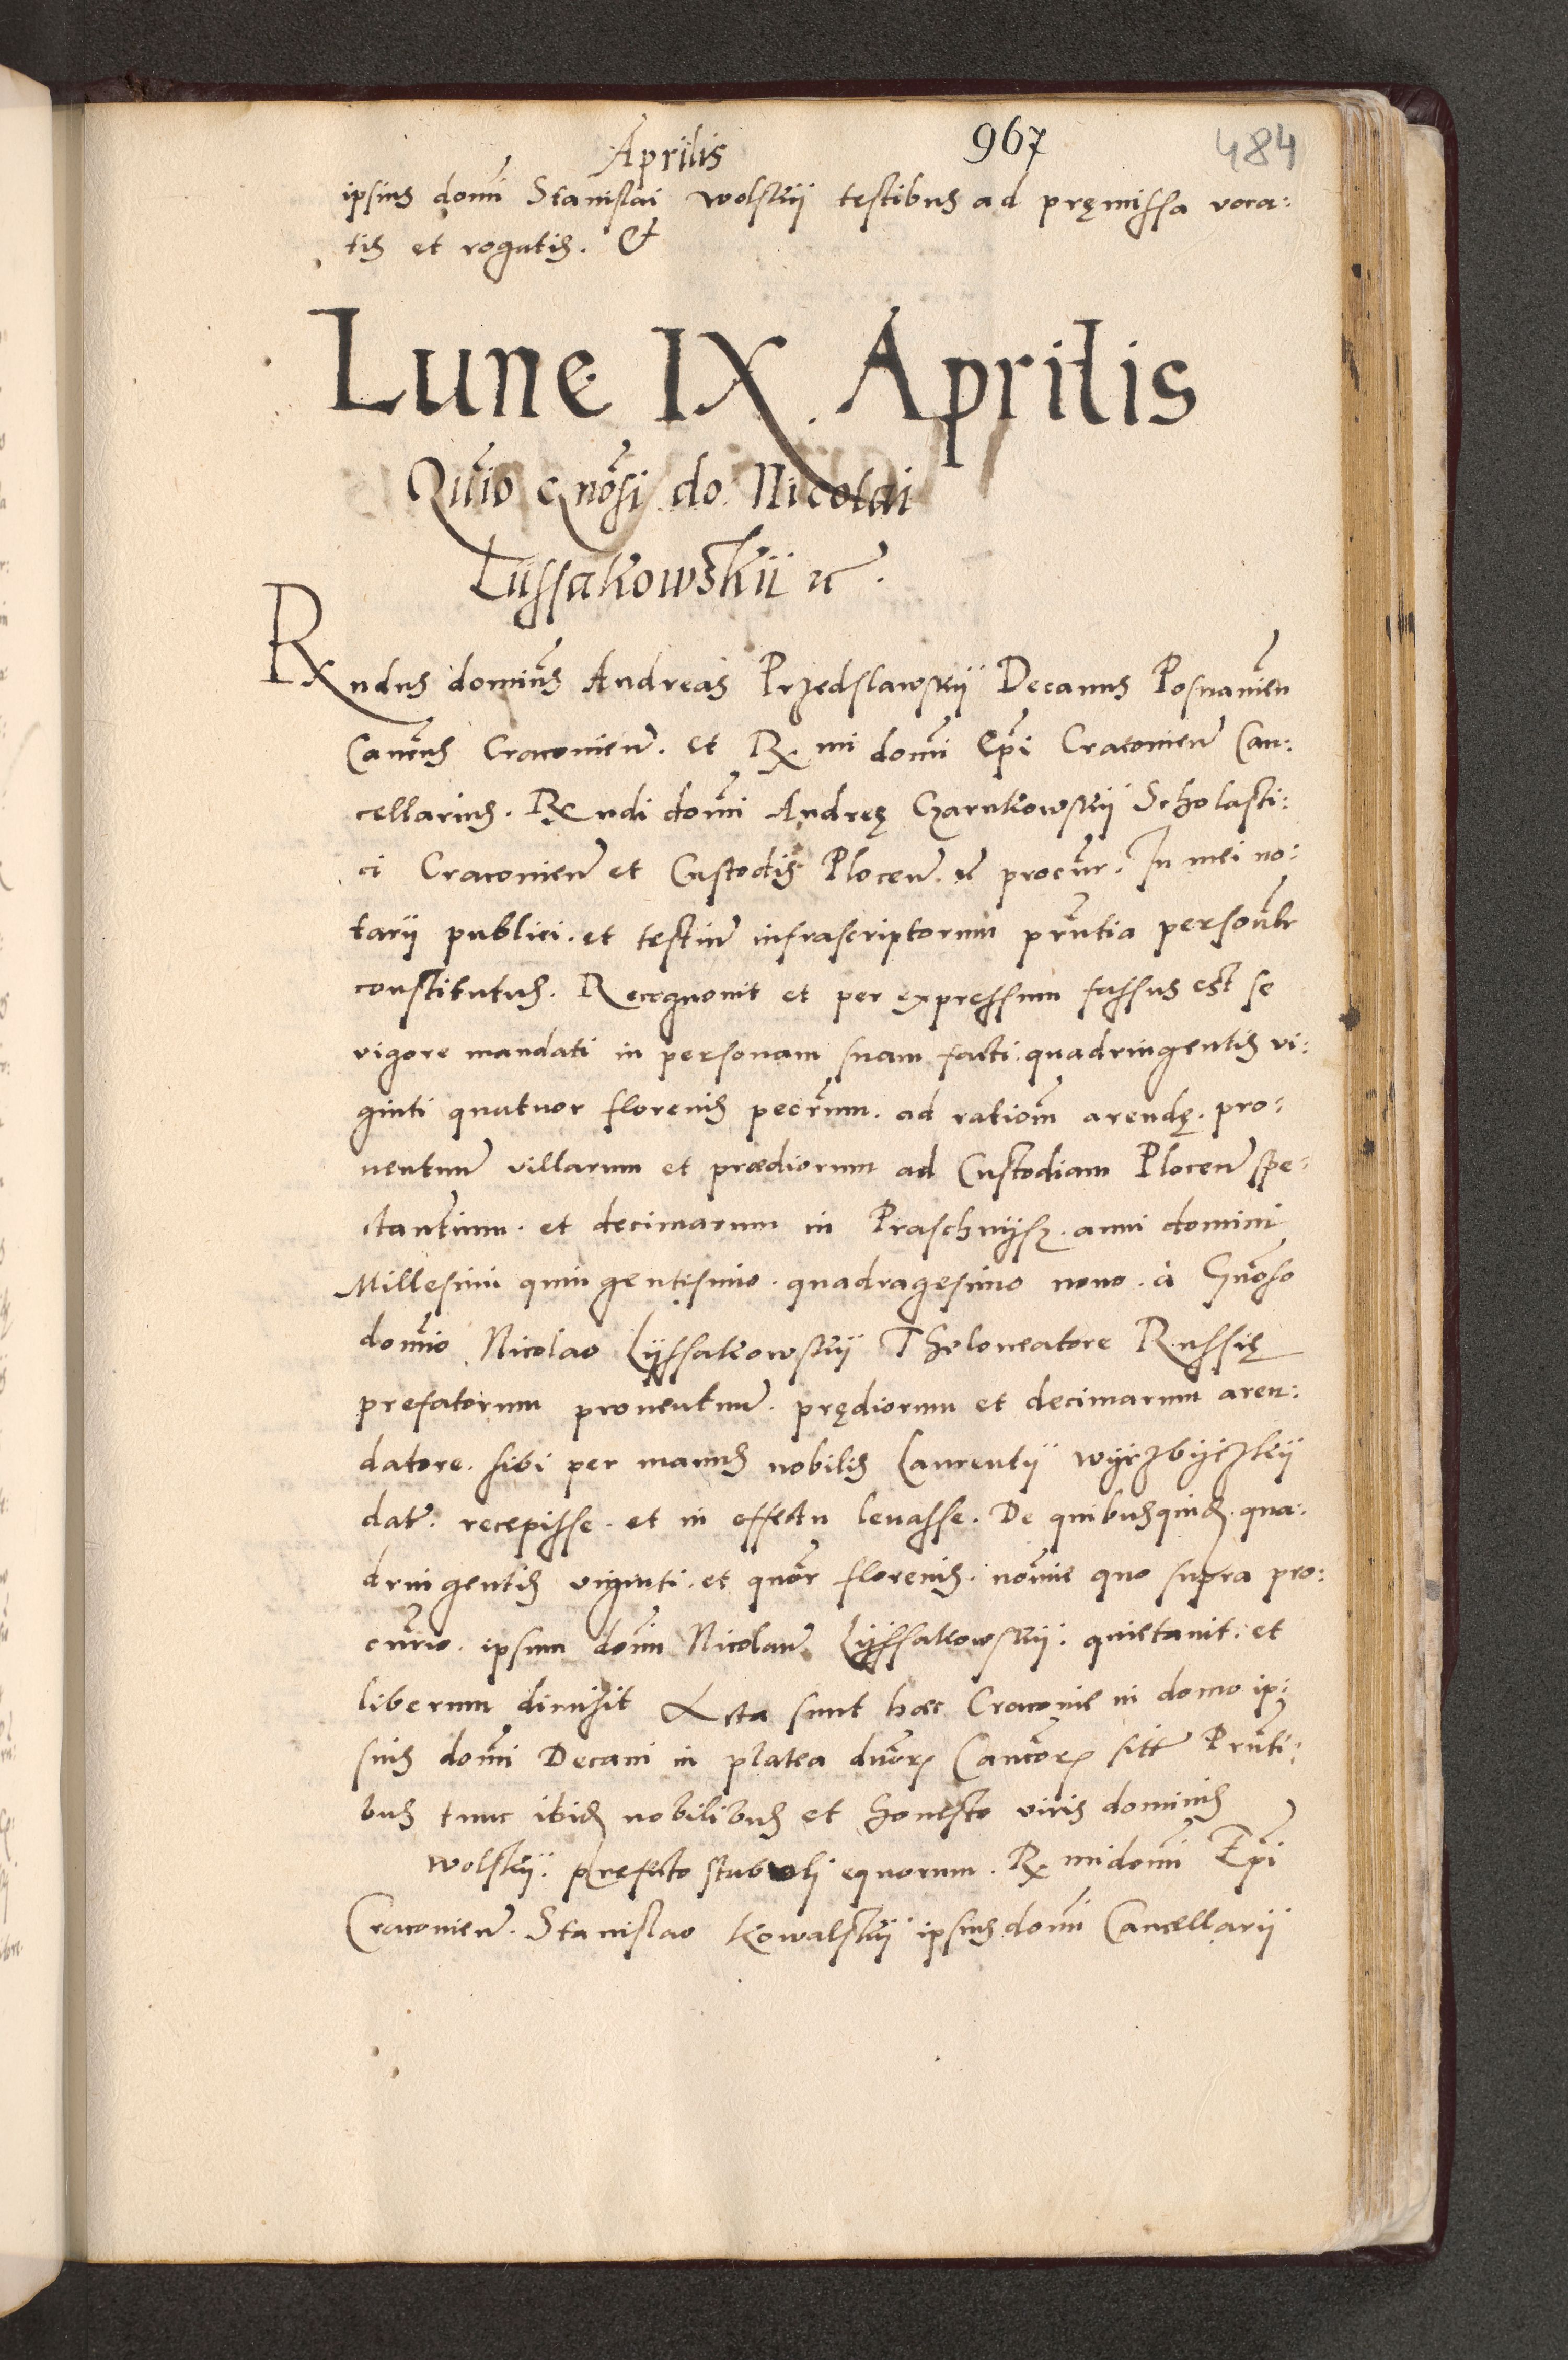 Aprilis 967 484
ipsius domi Stanislai Wolskij testibus ad pręmissa voca:
tis et rogatis. &
Lune IX Aprilis
Quio Gnosi do. Nicolai
Lijssakowskij
Rndus dominus Andreas Przedslawskij Decanus Posnanien
Cancus Cracovien. et R mi domi Epi Cracovien Can:
cellarius. R ndi domi Andreę Czarnkowskij Scholasti:
ci Cracovien et Custodis Plocen. procur. In mei no:
tarij publici. et testium infrascriptorum pntia personlr
constitutus. Recognovit et per expressum fassus est se
vigore mandati in personam suam facti. quadringentis vi:
ginti quatuor florenis pecrum. ad rationem arendę. pro:
ventuum villarum et prædiorum ad Custodiam Plocen spe:
ctantium. et decimarum in Praschnijsz. anni domini
Millesimi quingentisimo. quadragesimo nono. à Gnoso
domio Nicolao Lijssakowskij Theloneatore Russię
prefatorum proventuum. prędiorum et decimarum aren:
datore. sibi per manus nobilis Laurentij Wijrzbijczkij
dat. recepisse. et in effectu levasse. De quibusquid. qua:
dringentis viginti. et quor florenis. noie quo supra pro:
curio. ipsum dom Nicolaum Lijssakowskij. quietavit. et
liberum dimisit Acta sunt hæc Cracovie in domo ip:
sius domi Decani in platea duor Cancor sitt Pnti:
bus tunc ibid nobilibus et honesto viris dominis
Wolskij. prefecto stabuli equorum. R mi domi Epi
Cracovien. Stanislao Kowalskij ipsius domi Cancellarij